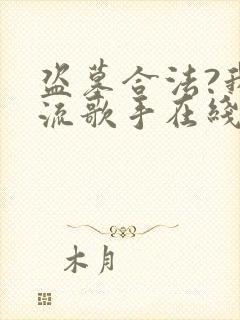 盗墓合法?我
流歌手在线
木月